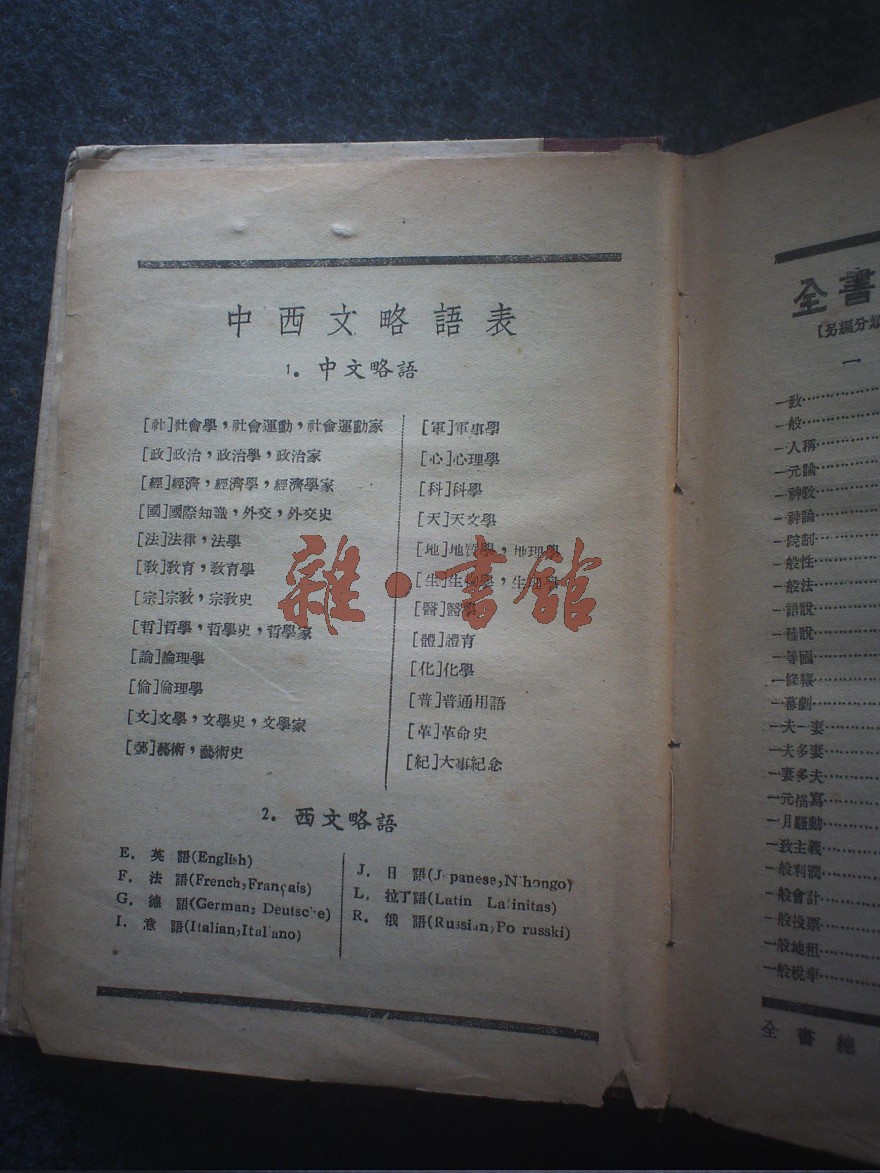 中西文略語表
1. 中文略語
[社]社會學，社會運動，社會運動家
[政]政治，政治學，政治家
[經]經濟，經濟學，經濟學家
[國]國際知識，外交，外交史
[法]法律，法學
[教]教育，教育學
[宗]宗教，宗教史
[哲]哲學，哲學史，哲學家
[論]論理學
[倫]倫理學
[文]文學，文學史，文學家
[藝]藝術，藝術史
[軍]軍事學
[心]心理學
[科]科學
[天]天文學
[地]地質學，地理學
[生]生物學，生理學
[醫]醫學
[體]體育
[化]化學
[普]普通用語
[革]革命史
[紀]大事紀念
2. 西文略語
E. 英 語(English)
F. 法 語(French,Français)
G. 德 語(German; Deutsche)
I. 意 語(Italian,Italiano)
J. 日 語(Japanese,Nihongo)
L. 拉丁語(Latin Latinitas)
R. 俄 語(Russian,Po russki)
雜·書館
全書
[另編分類
一
一致
一般
一人稱
一元論
一神教
一神論
一院制
一般性
一般法
一語說
一種說
一等國
一條鞭
一幕劇
一夫一妻
一夫多妻
一妻多夫
一元描寫
一月騷動
一致主義
一般利潤
一般會計
一般投票
一般地租
一般稅率
全書總